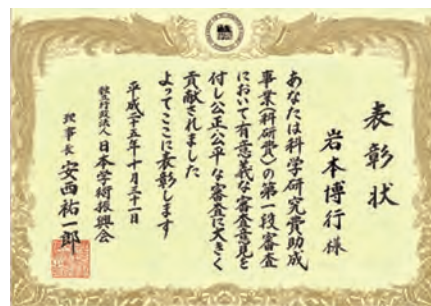 表彰状
岩本博行様
あなたは科学研究費助成
事業(科研費)の第一段審査
において有意義な審査意見を
付し公正公平な審査に大きく
貢献されました
よってここに表彰します
平成二十五年十月三十一日
独立行政法人日本学術振興会
理事長 安西祐一郎